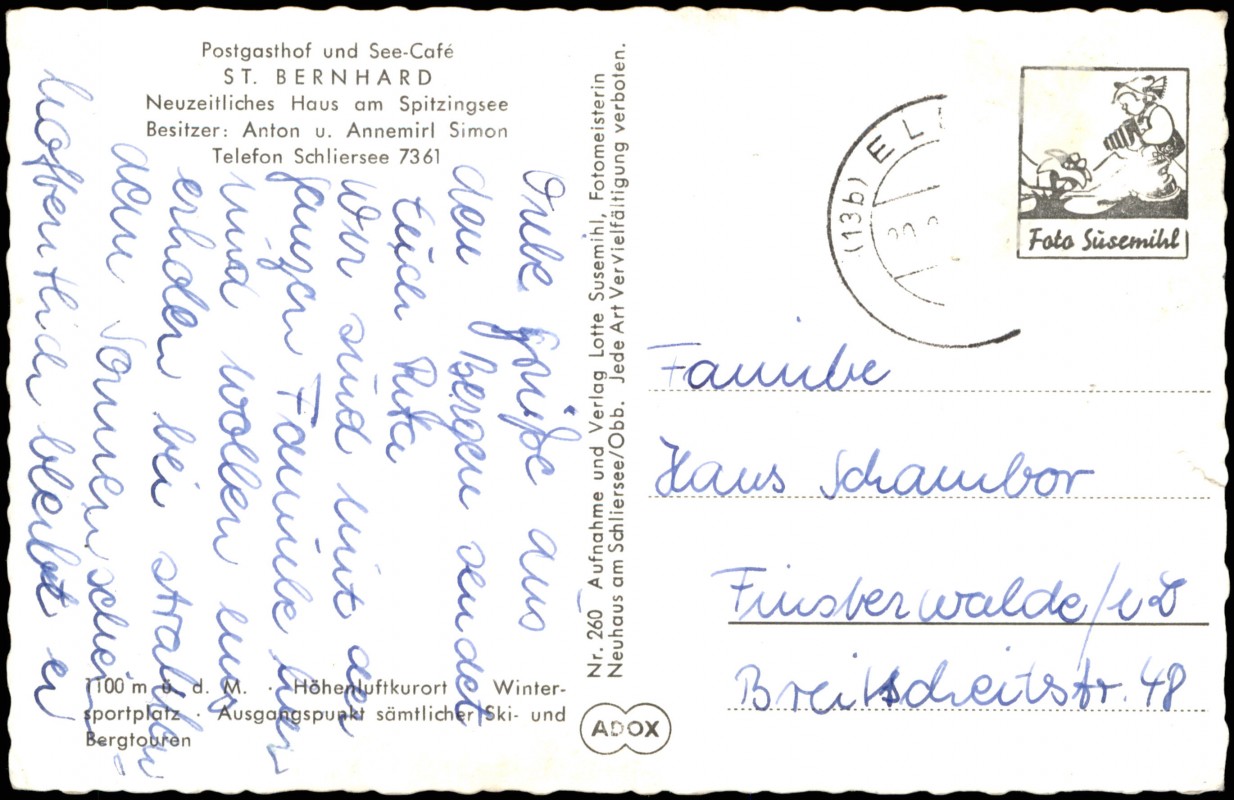 Postgasthof und See-Café
ST. BERNHARD
Neuzeitliches Haus am Spitzingsee
Besitzer: Anton u. Annemirl Simon
Telefon Schliersee 7361
grüße aus
den Bergen sendet
Euch
Wir sind mit der
ganzen Familie hier
und wollen uns
erholen bei
dem Sonnenschein
hoffentlich bleibt er
1100 m ü. d. M. · Höhenluftkurort · Winter-
sportplatz · Ausgangspunkt sämtlicher Ski- und
Bergtouren
Nr. 260 Aufnahme und Verlag Lotte Susemihl, Fotomeisterin
Neuhaus am Schliersee/Obb. Jede Art Vervielfältigung verboten.
ADOX
(13b)
Foto Susemihl
Familie
Hans Schambor
Finsterwalde
Breitscheitstr. 48